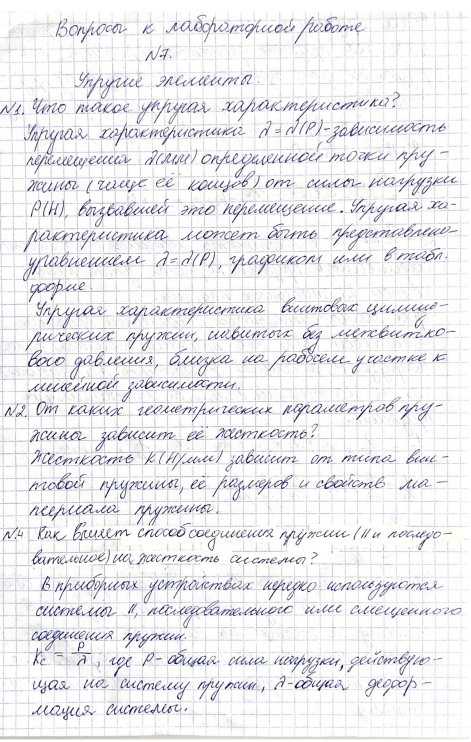 Вопросы к лабораторной работе
N7.
Упругие элементы.
N1. Что такое упругая характеристика?
Упругая характеристика λ=λ(P)-зависимость
перемещения λ(мм) определенной точки пру-
жины (чаще её концов) от силы нагрузки
P(H), вызвавшей это перемещение. Упругая ха-
рактеристика может быть представлена
уравнением λ=λ(P), графиком или в табл.
форме.
Упругая характеристика винтовых цилинд-
рических пружин, навитых без межвитко-
вого давления, близка на рабочем участке к
линейной зависимости.
N2. От каких геометрических параметров пру-
жины зависит её жёсткость?
Жёсткость K(H/мм) зависит от типа вин-
товой пружины, её размеров и свойств ма-
териала пружины.
N4. Как влияет способ соединения пружин (II и последо-
вательное) на жесткость системы?
В приборных устройствах нередко используются
системы II, последовательного или смешенного
соединения пружин.
Kc = P/λ, где P-общая сила нагрузки, действую-
щая на систему пружин, λ-общая дефор-
мация системы.